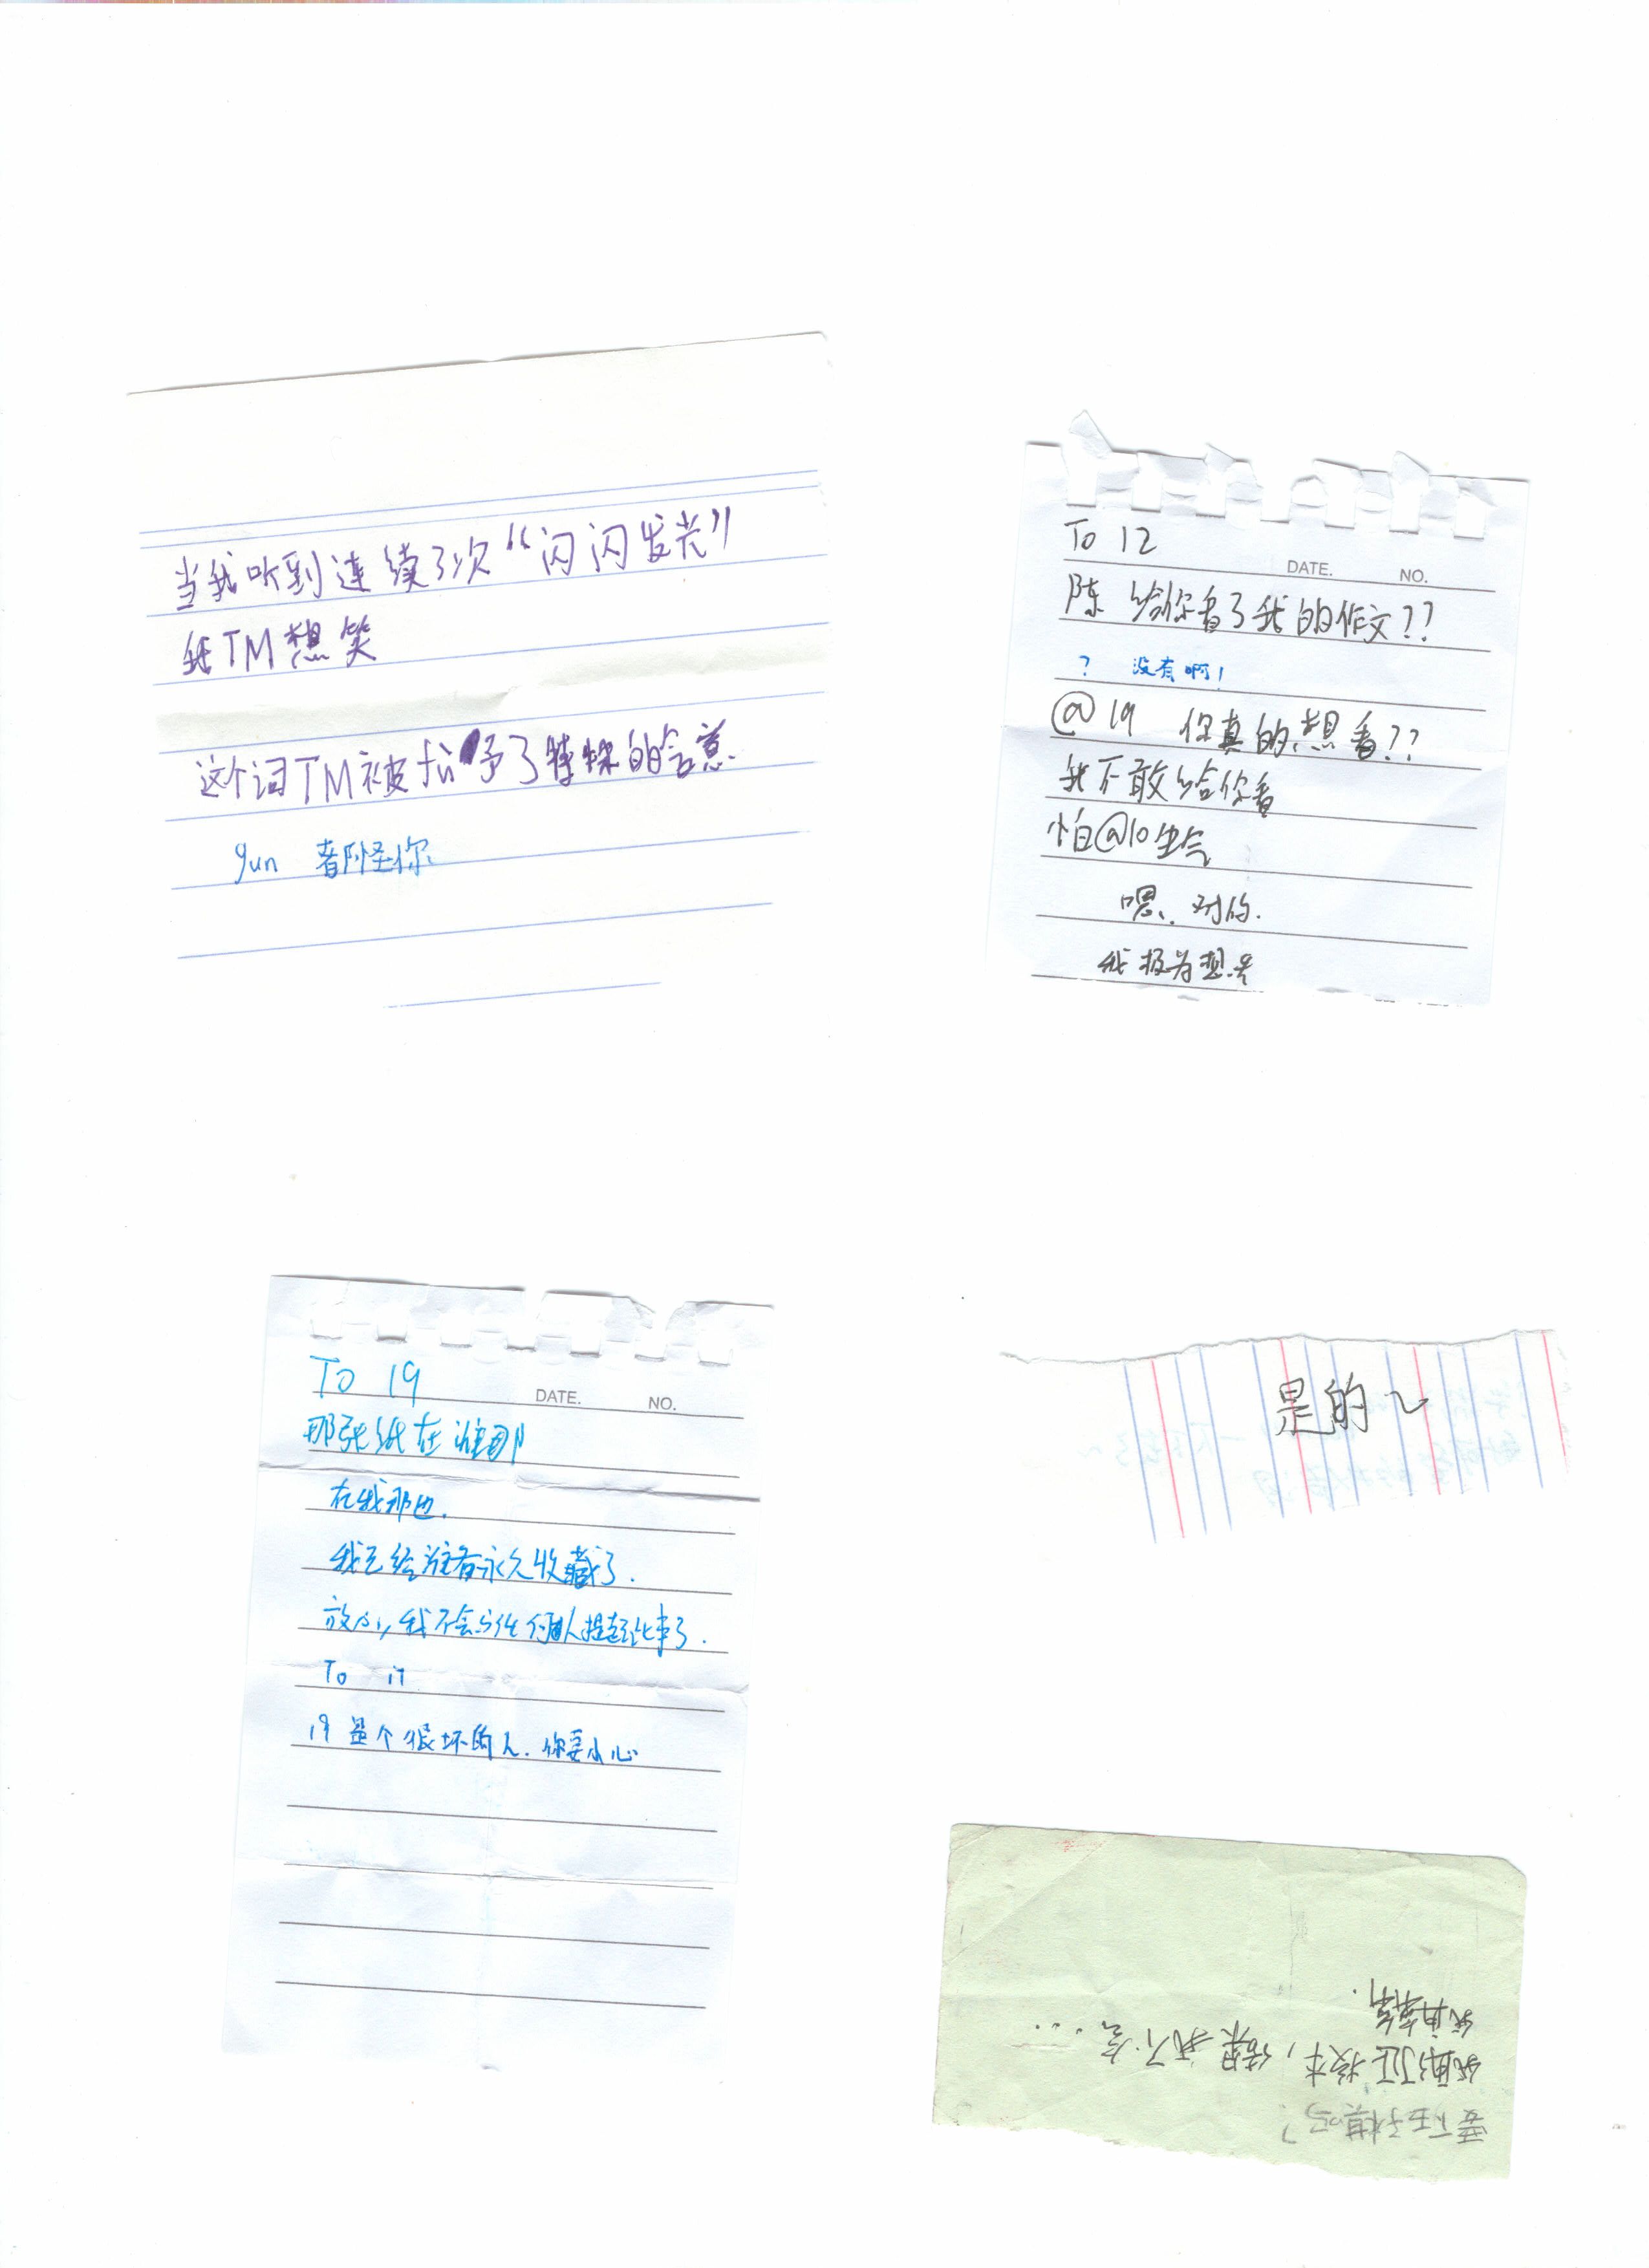 当我听到连续了次“闪闪发光”
我TM想笑
这个词TM被付予了特殊的含意.
yun 都怪你.
To 12
DATE. NO.
陈 给你看了我的作文??
? 没有啊!
@19 你真的想看??
我不敢给你看
怕@10生气
嗯、对的.
我极为想看
To 19
DATE. NO.
那张纸在谁那
在我那也.
我已经准备永久收藏了.
放心,我不会与任何人提起此事了.
To 17
19是个很坏的人.你要小心
是的~
要下五子棋吗?
结果我不会...